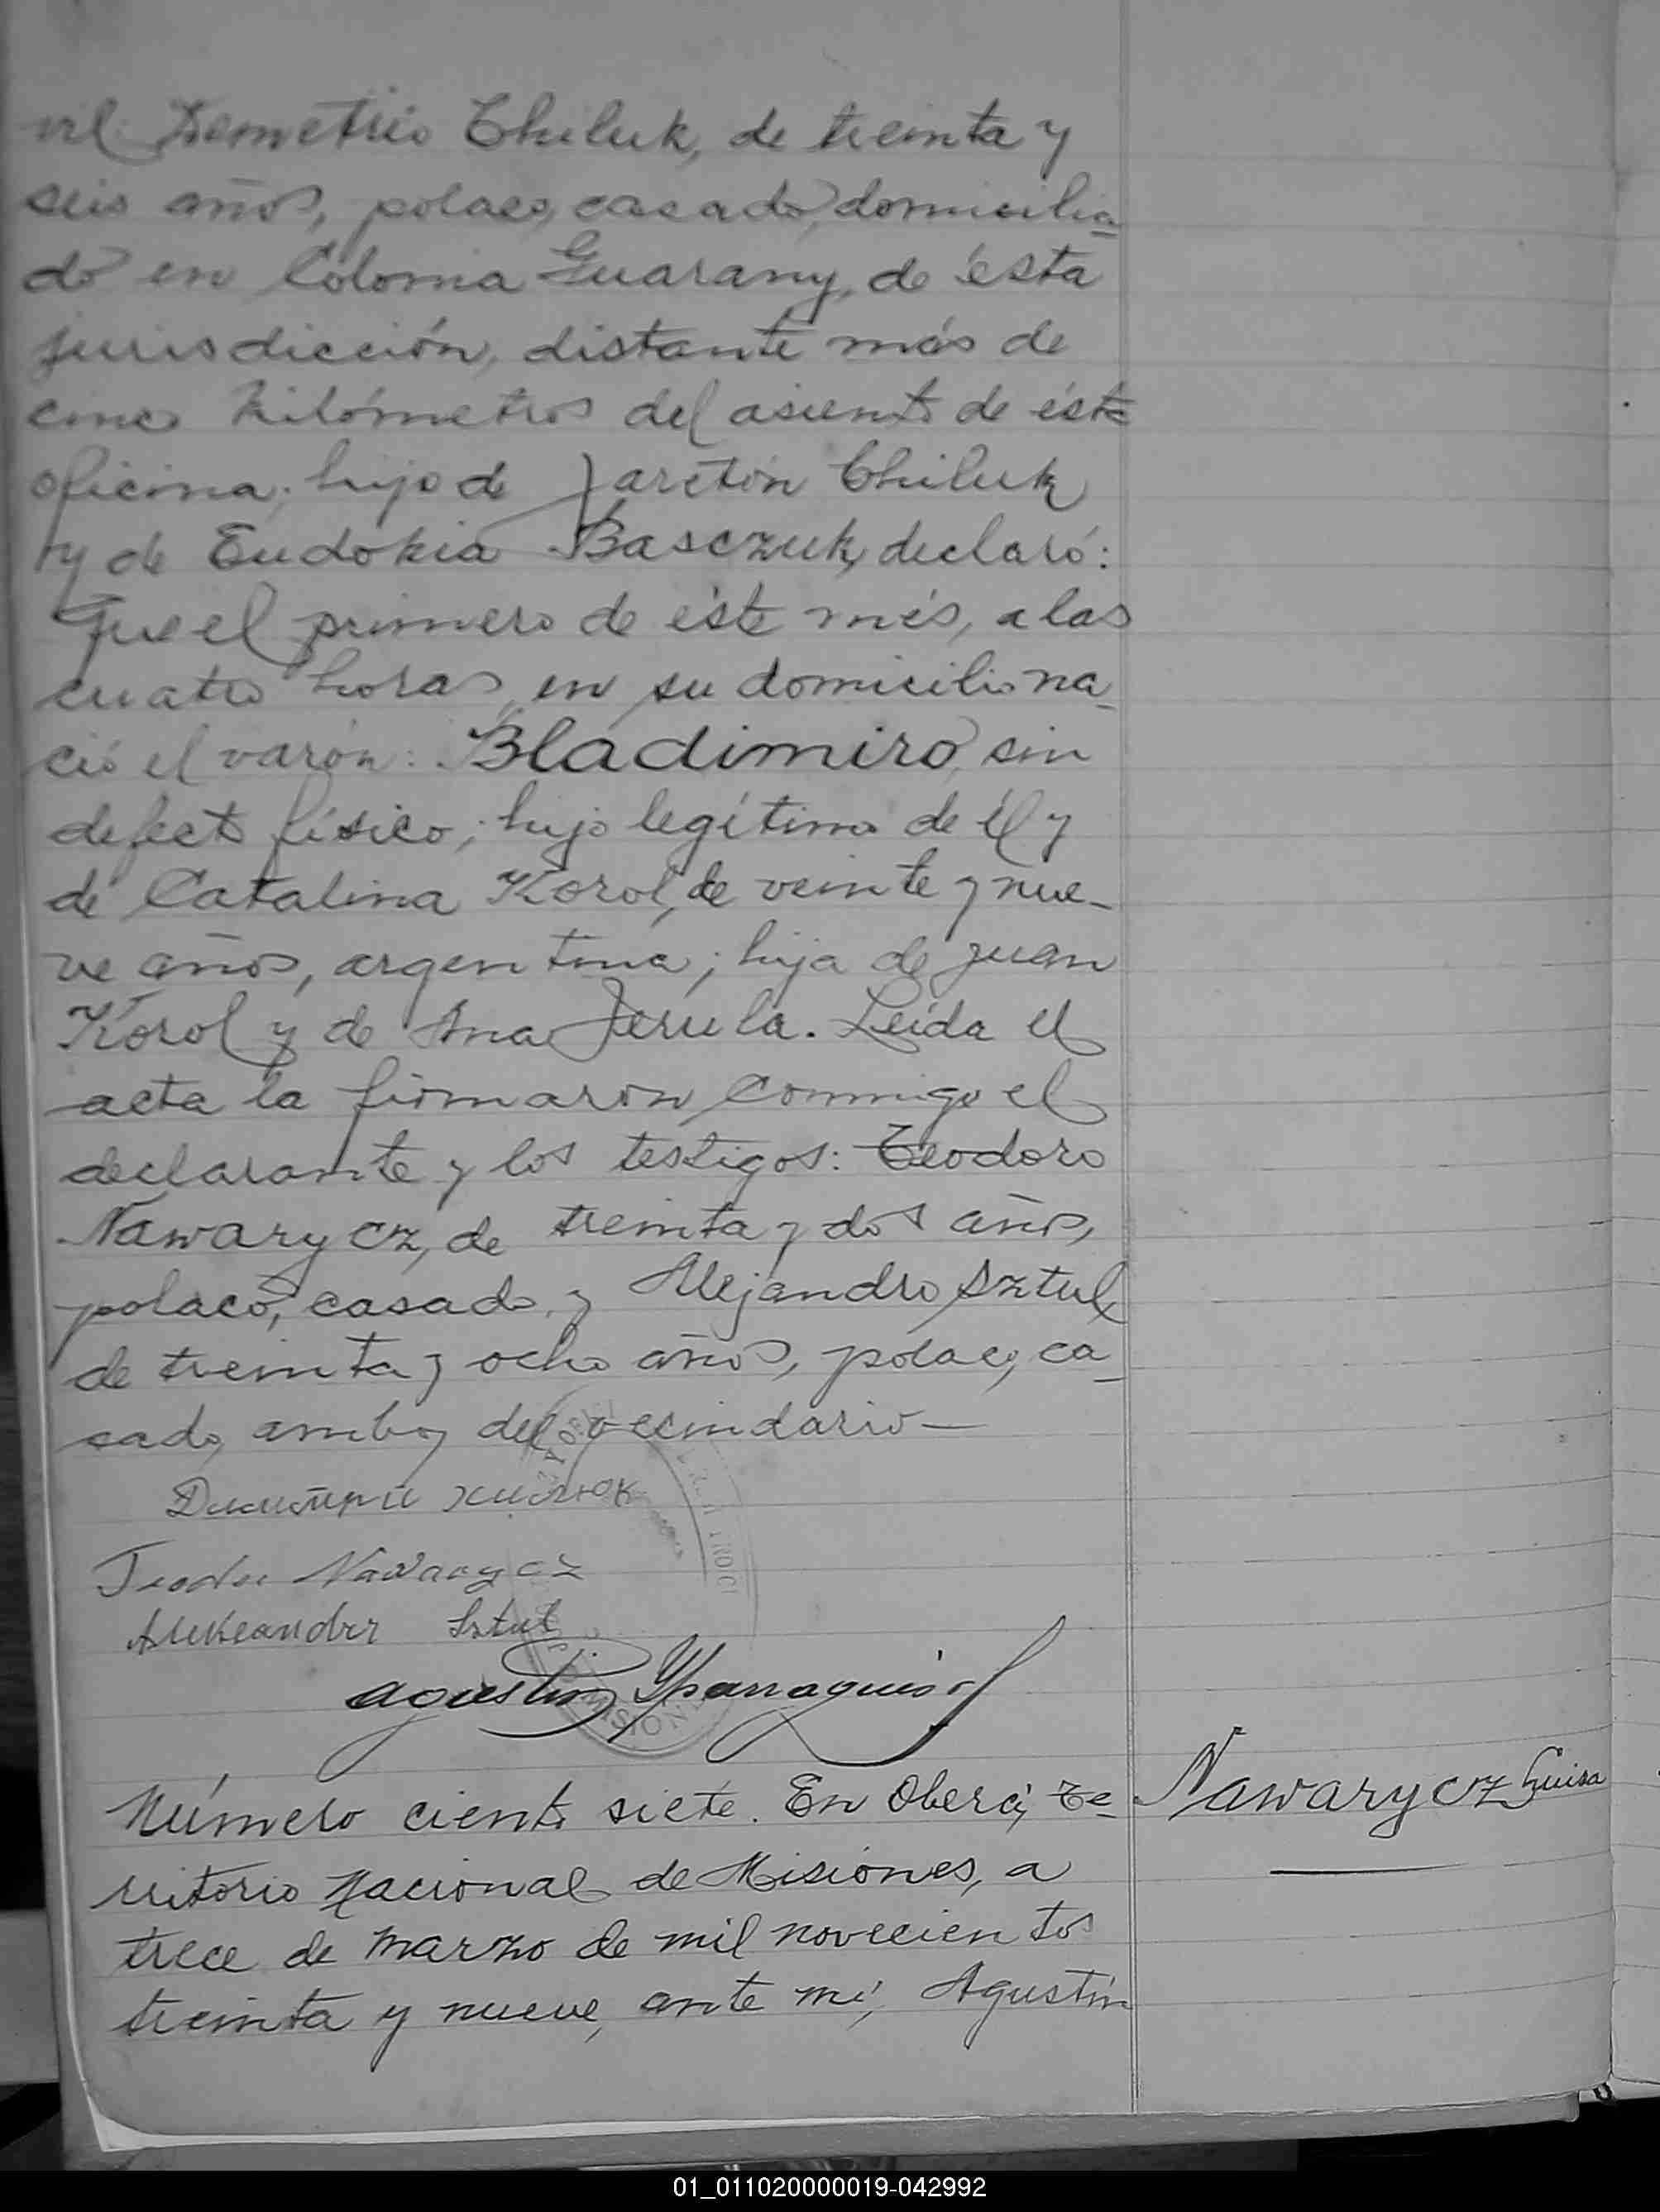 vil Demetrio Chiluk, de treinta y
seis años, polaco, casado, domicilia-
do en Colonia Guarany, de ésta
jurisdicción, distante más de
cinco kilómetros del asiento de ésta
oficina; hijo de Jaretón Chiluk
y de Eudokia Basczuk, declaró:
Que el primero de éste més, a las
cuatro horas, en su domicilio na-
ció el varón: Bladimiro, sin
defecto físico; hijo legítimo de él y
de Catalina Korol, de veinte y nue-
ve años, argentina; hija de Juan
Korol y de Ana Jerula. Leída el
acta la firmaron conmigo el
declarante y los testigos: Teodoro
Nawarycz, de treinta y dos años,
polaco, casado, y Alejandro Sztul
de treinta y ocho años, polaco, ca-
sado, ambos del vecindario—
Димитрій Хилюк
Teodor Nawarycz
Aleksander Sztul
Agustín Yparraguirre
MISIONES
Número ciento siete. En Oberá, Te-
rritorio Nacional de Misiones, a
trece de marzo de mil novecientos
treinta y nueve, ante mí, Agustín
Nawarycz Luisa
01_011020000019-042992